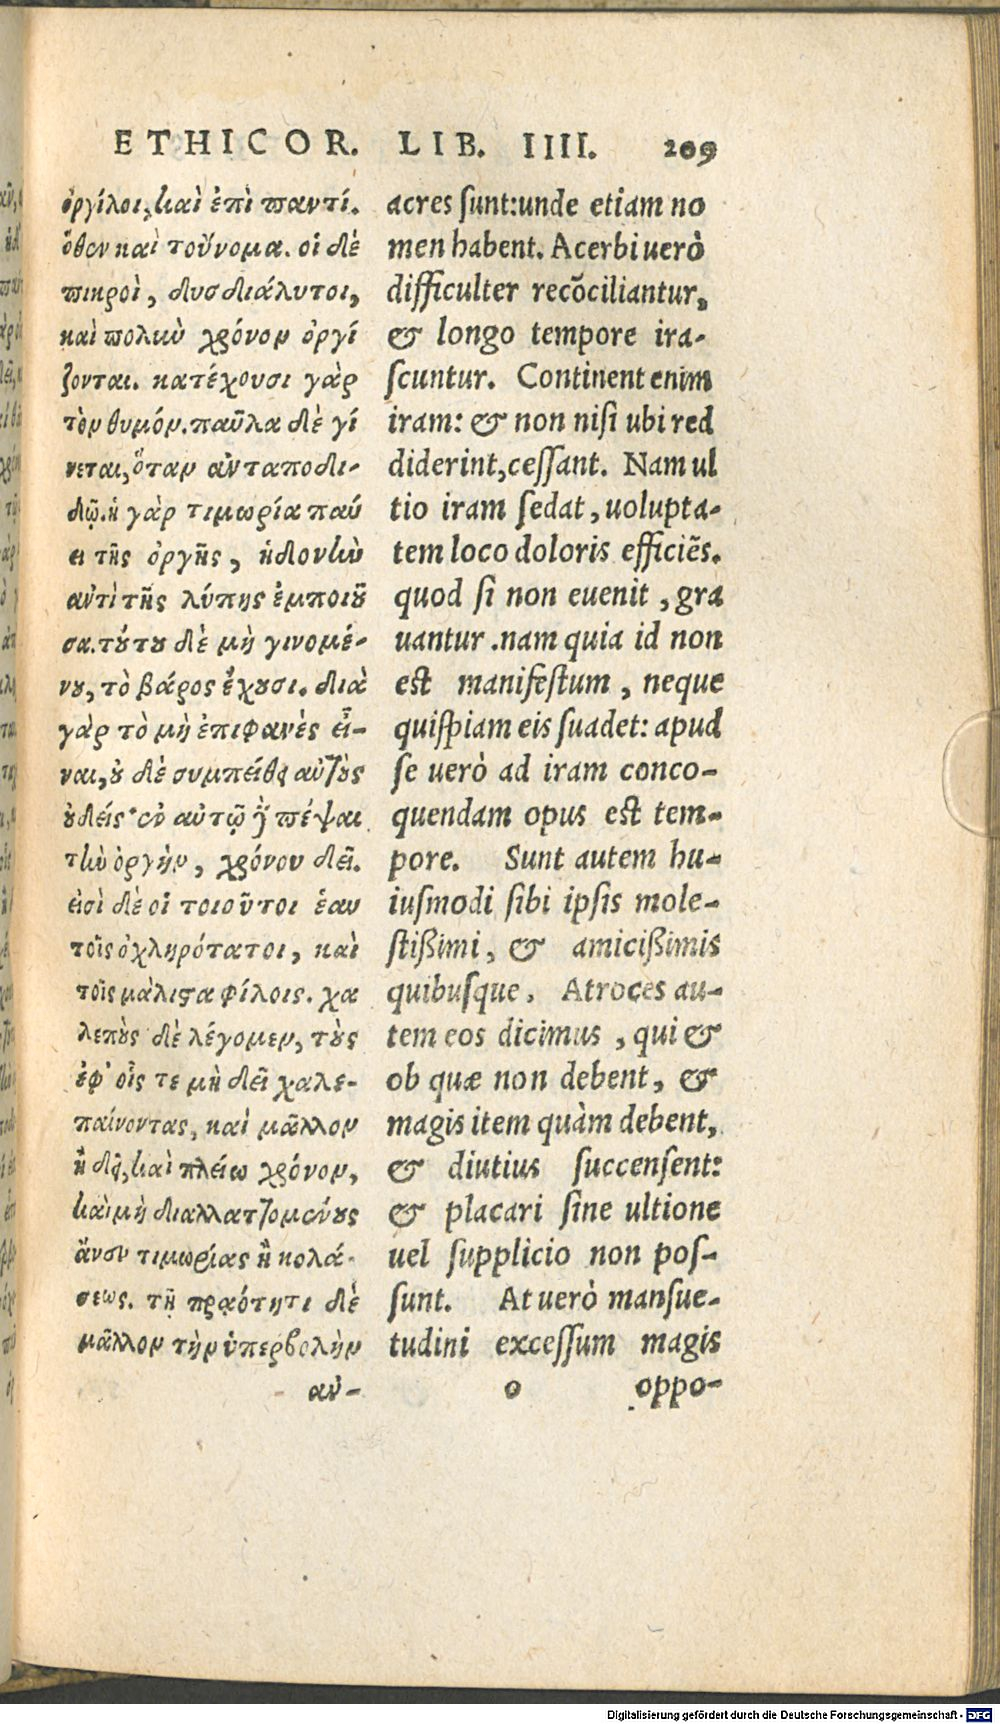 ETHICOR. LIB. IIII. 209
ὀργίλοι, καὶ ἐπὶ παντί.
ὅθεν καὶ τοὔνομα. οἱ δὲ
πικροὶ, δυσδιάλυτοι,
καὶ πολὺν χρόνον ὀργί
ζονται. κατέχουσι γὰρ
τὸν θυμόν. παῦλα δὲ γί
νεται, ὅταν ἀνταποδι-
δῷ. ἡ γὰρ τιμωρία παύ
ει τῆς ὀργῆς, ἡδονὴν
ἀντὶ τῆς λύπης ἐμποιοῦ
σα. τούτου δὲ μὴ γινομέ-
νου, τὸ βάρος ἔχουσι. διὰ
γὰρ τὸ μὴ ἐπιφανὲς εἶ-
ναι, οὐδὲ συμπείθει αὐτοὺς
οὐδείς· ἐν αὑτῷ δὲ πέψαι
τὴν ὀργὴν, χρόνου δεῖ.
εἰσὶ δὲ οἱ τοιοῦτοι ἑαυ
τοῖς ὀχληρότατοι, καὶ
τοῖς μάλιστα φίλοις. χα
λεποὺς δὲ λέγομεν, τοὺς
ἐφ᾽ οἷς τε μὴ δεῖ χαλε-
παίνοντας, καὶ μᾶλλον
ἢ δεῖ, καὶ πλείω χρόνον,
καὶ μὴ διαλλαττομένους
ἄνευ τιμωρίας ἢ κολά-
σεως. τῇ πραότητι δὲ
μᾶλλον τὴν ὑπερβολὴν
ἀν-
acres sunt: unde etiam no
men habent. Acerbi uerò
difficulter recōciliantur,
& longo tempore ira-
scuntur. Continent enim
iram: & non nisi ubi red
diderint, cessant. Nam ul
tio iram sedat, uolupta-
tem loco doloris efficiēs.
quod si non euenit, gra
uantur. nam quia id non
est manifestum, neque
quispiam eis suadet: apud
se uerò ad iram conco-
quendam opus est tem-
pore. Sunt autem hu-
iusmodi sibi ipsis mole-
stißimi, & amicißimis
quibusque. Atroces au-
tem eos dicimus, qui &
ob quæ non debent, &
magis item quàm debent,
& diutius succensent:
& placari sine ultione
uel supplicio non pos-
sunt. At uerò mansue-
tudini excessum magis
o oppo-
Digitalisierung gefördert durch die Deutsche Forschungsgemeinschaft - DFG